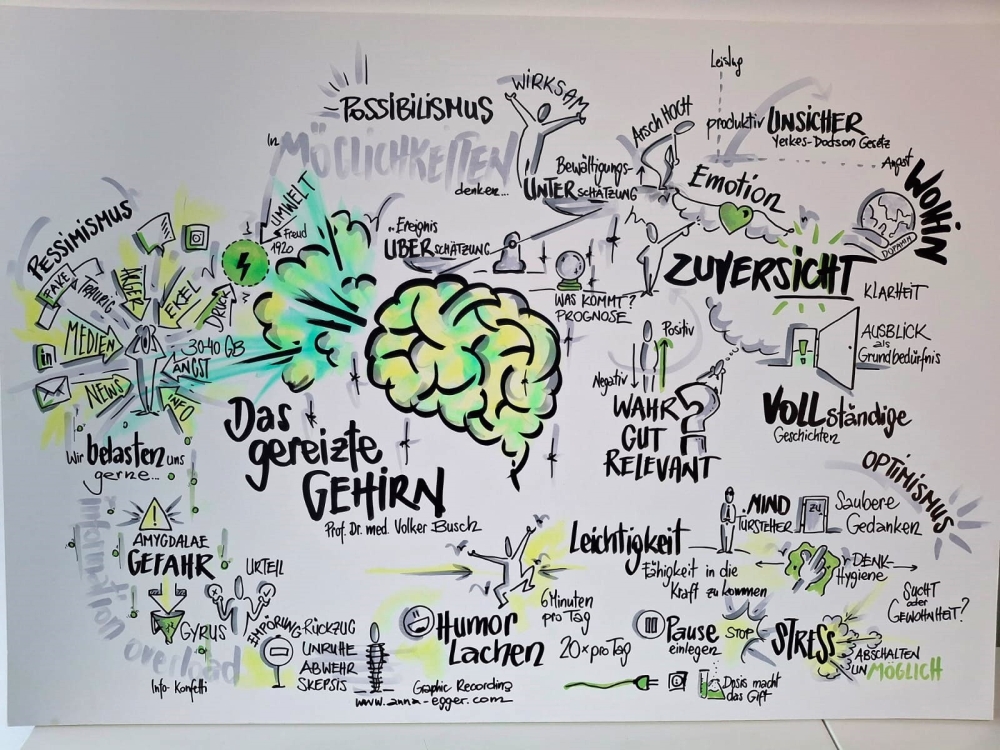 PESSIMISMUS
FAKE
TRAURIG
EKEL
DRUCK
MEDIEN
in
NEWS
30-40 GB
ANGST
INFO
UMWELT
Freud
1920
Wir belasten uns
gerne...
AMYGDALAE
GEFAHR
GYRUS
Info-Konfetti
information overload
URTEIL
EMPÖRUNG
RÜCKZUG
UNRUHE
ABWEHR
SKEPSIS
POSSIBILISMUS
In MÖGLICHKEITEN
denken...
WIRKSAM
Bewältigungs-
UNTERSCHÄTZUNG
Ereignis
ÜBERSCHÄTZUNG
WAS KOMMT?
PROGNOSE
Das
gereizte
GEHIRN
Prof. Dr. med. Volker Busch
Arsch HOCH
Leistug
produktiv UNSICHER
Yerkes-Dodson Gesetz
Angst
Emotion
WOHIN
DOPAMIN
ZUVERSICHT
KLARHEIT
AUSBLICK
als
Grundbedürfnis
Positiv
Negativ
WAHR
GUT
RELEVANT
VOLLständige
Geschichten
OPTIMISMUS
MIND
TÜRSTEHER
ZU
Saubere
Gedanken
Leichtigkeit
Fähigkeit in die
Kraft zu kommen
DENK-
Hygiene
SUCHT
oder
GEWOHNHEIT?
6 Minuten
pro Tag
Humor
Lachen
20x pro Tag
Pause
einlegen
STOP
STRESS
ABSCHALTEN
UNMÖGLICH
Dosis macht
das Gift
Graphic Recording
www.anna-egger.com